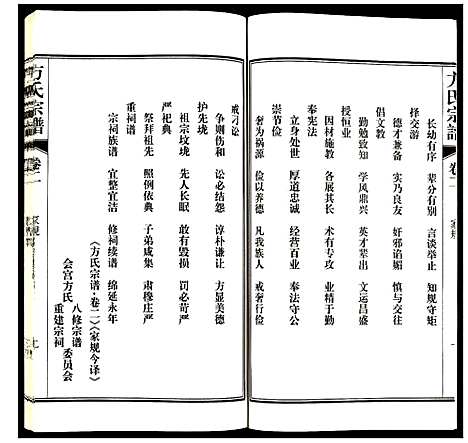 方氏宗譜
卷二
家规
长幼有序 辈分有别 言谈举止 知规守矩
择交游
德才兼备 实乃良友 奸邪谄媚 慎与交往
倡文教
勤勉致知 学风鼎兴 英才辈出 文运昌盛
授恒业
因材施教 各展其长 术有专攻 业精于勤
奉宪法
立身处世 厚道忠诚 经营百业 奉法守公
崇节俭
奢为祸源 俭以养德 凡我族人 戒奢行俭
戒习讼
争则伤和 讼必结怨 谆朴谦让 方显美德
护先垅
祖宗坟垅 先人长眠 敢有毁损 罚必苛严
严祀典
祭拜祖先 照例依典 子弟咸集 肃穆庄严
重祠谱
宗祠族谱 宜整宜洁 修祠续谱 绵延永年
《方氏宗谱·卷二》《家规今译》
会宫方氏 八修宗谱 重建宗祠 委员会
方氏宗譜
卷二